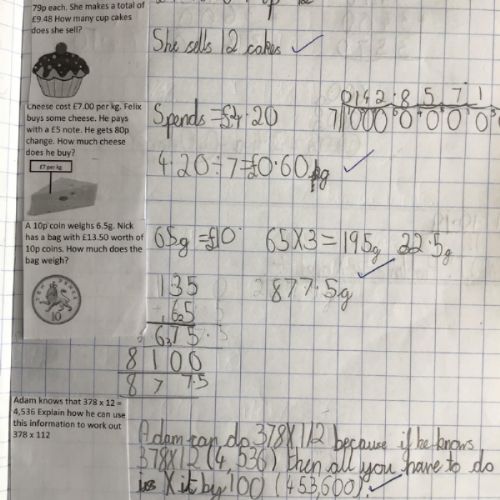 79p each. She makes a total of
£9.48 How many cup cakes
does she sell?
She sells 12 cakes ✓
Cheese cost £7.00 per kg. Felix
buys some cheese. He pays
with a £5 note. He gets 80p
change. How much cheese
does he buy?
£7 per kg
Spends = £4.20
0142.8571
7 1000.0000
4.20÷7=£0.60 kg ✓
A 10p coin weighs 6.5g. Nick
has a bag with £13.50 worth of
10p coins. How much does the
bag weigh?
10
65g = £10 65X3 = 195g 22.5g
877.5g ✓
135
6.5
675
8100
877.5
Adam knows that 378 x 12 =
4,536 Explain how he can use
this information to work out
378 x 112
Adam can do 378X112 because if he knows
378X12 (4,536) then all you have to do
is X it by 100 (453600) ✓